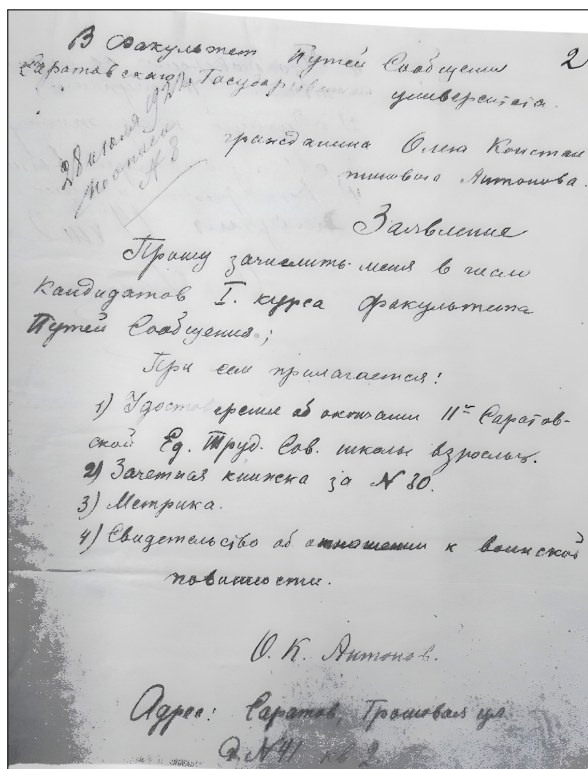 2
В Факультет Путей Сообщения
Саратовскаго Государственнаго
университета.
28 июля 192
№ 8
гражданина Олега Констан
тиновича Антонова.
Заявление
Прошу зачислить меня в число
Кандидатов I. курса факультета
Путей Сообщения;
При сем прилагается:
1) Удостоверение об окончании 11й Саратов-
ской Ед. Труд. Сов. школы взрослых.
2) Зачетная книжка за № 80.
3) Метрика.
4) Свидетельство об отношении к воинской
повинности.
О. К. Антонов.
Адрес: Саратов, Грошовая ул
Д. № 41 кв 2